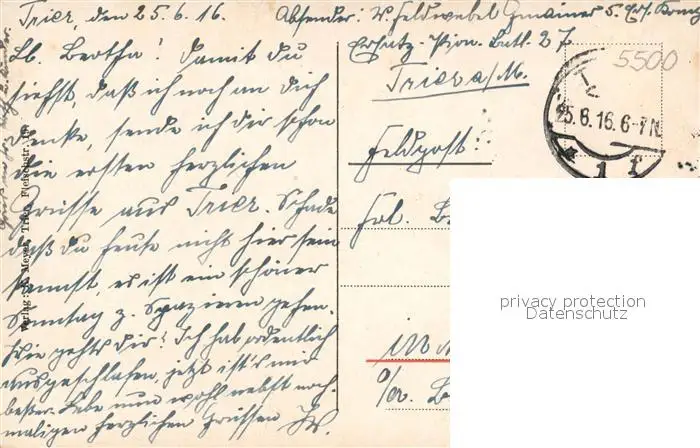 Trier, den 25.6.16.
Lb. Bertha! Damit du
siehst, daß ich noch an dich
denke, sende ich dir schon
die ersten herzlichen
Grüsse aus Trier. Schade
daß du heute nicht hier sein
kannst, es ist ein schöner
Sonntag z. Spazieren gehen.
Wie gehts dir? Ich hab ordentlich
ausgeschlafen, jetzt ist's mir
besser. Lebe nun wohl nebst noch-
maligen herzlichen Grüssen
Absender: V. Feldwebel 5. Ers. Komp
Ersatz-Pion. Batl. 27
Trier a/M.
Feldpost:
Frl. B
in
O/A. B
5500
25.6.16.6-7N
* 1 f
Verlag: K. Meyer, Trier, Fleischstr. 10
privacy protection
Datenschutz